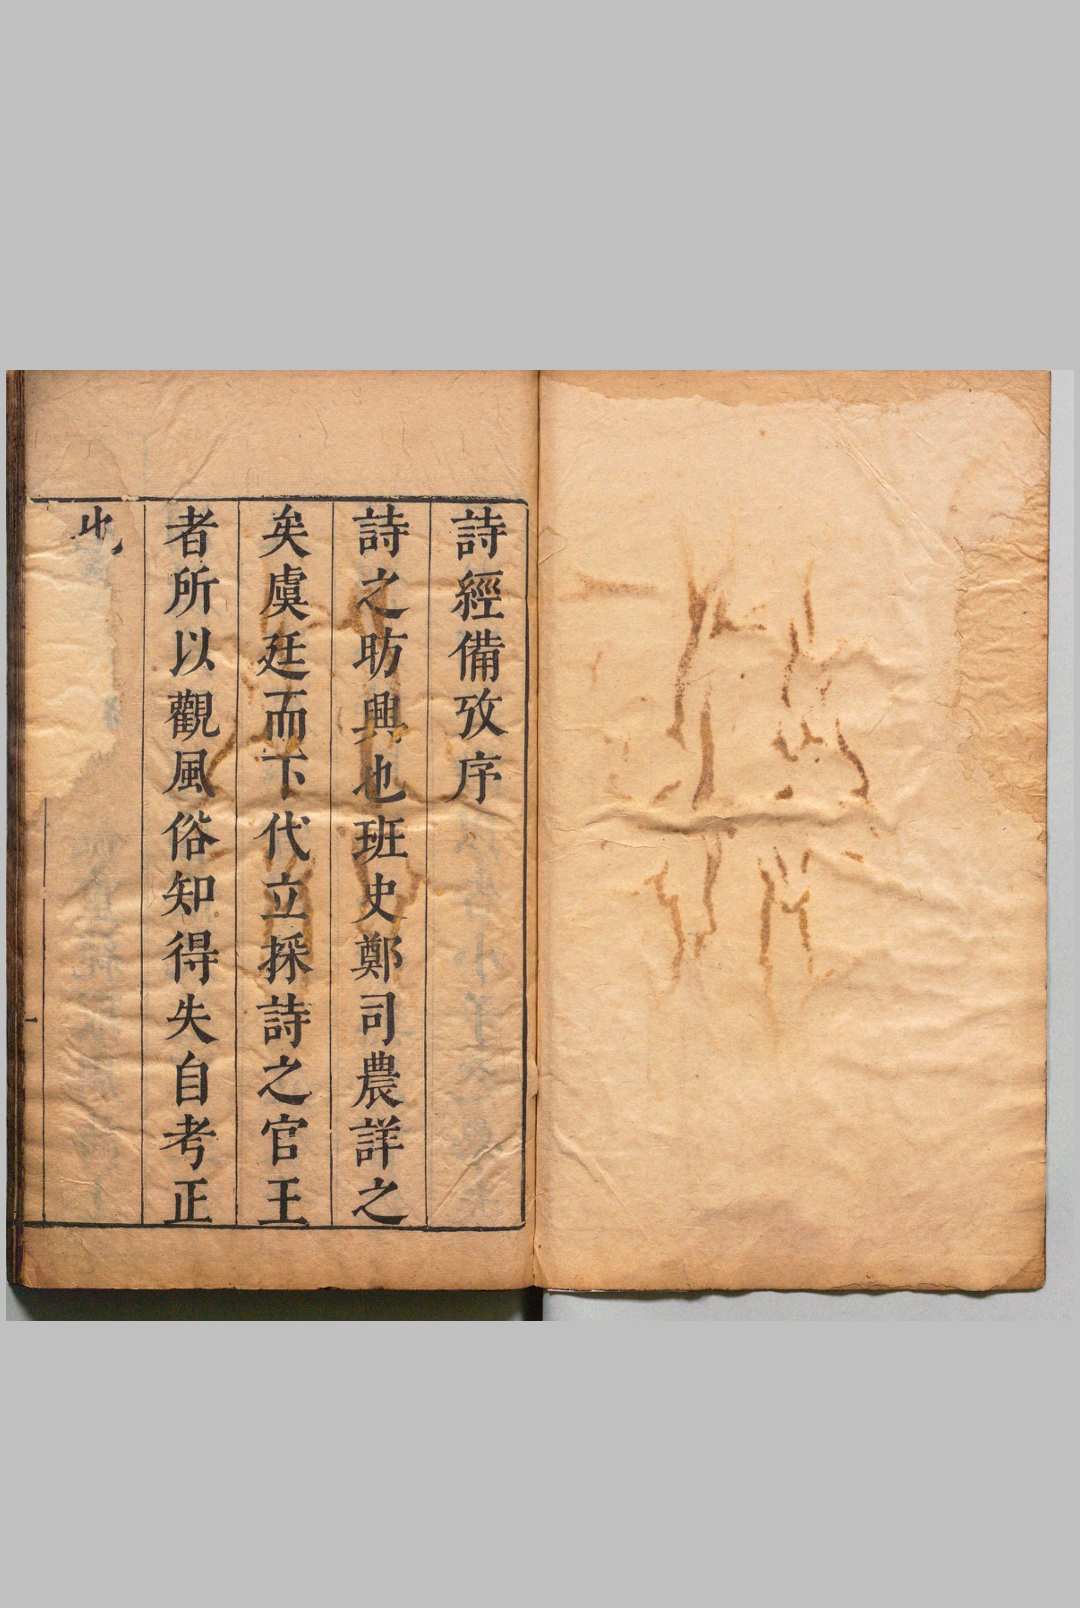 詩經備攷序
詩之昉興也班史鄭司農詳之
矣虞廷而下代立採詩之官王
者所以觀風俗知得失自考正
也